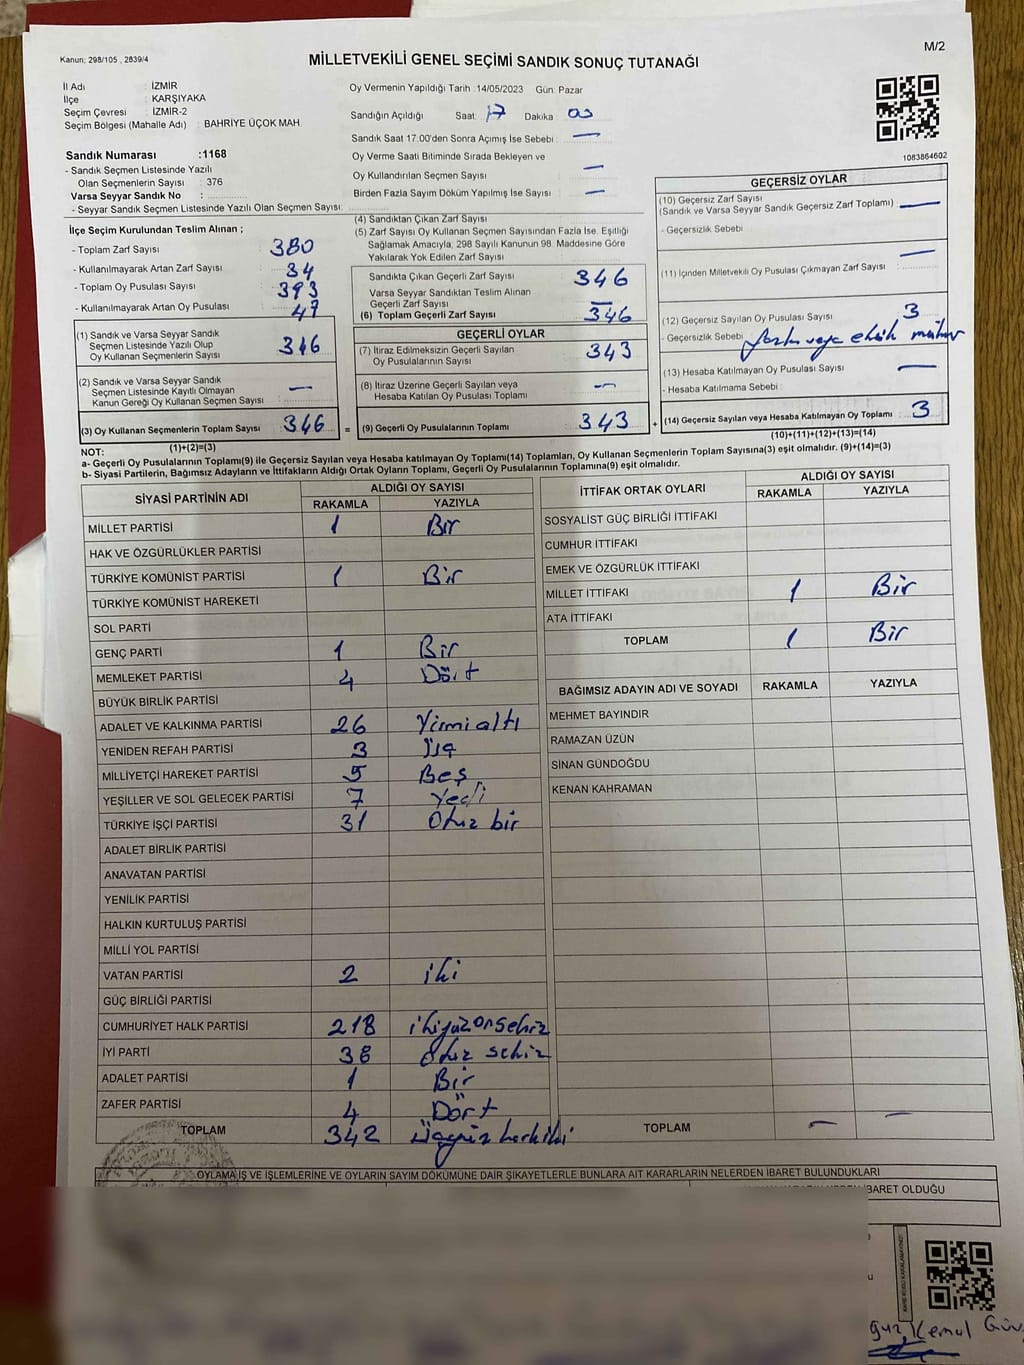 M/2
Kanun; 298/105 , 2839/4
MİLLETVEKİLİ GENEL SEÇİMİ SANDIK SONUÇ TUTANAĞI
İl Adı : İZMİR
İlçe : KARŞIYAKA
Seçim Çevresi : İZMİR-2
Seçim Bölgesi (Mahalle Adı) : BAHRİYE ÜÇOK MAH.
Oy Vermenin Yapıldığı Tarih :14/05/2023 Gün: Pazar
Sandığın Açıldığı Saat: 17 Dakika 00
Sandık Saat 17:00'den Sonra Açımış İse Sebebi : —
Oy Verme Saati Bitiminde Sırada Bekleyen ve
Oy Kullandırılan Seçmen Sayısı : —
Birden Fazla Sayım Döküm Yapılmış İse Sayısı : —
1083864602
Sandık Numarası :1168
- Sandık Seçmen Listesinde Yazılı
Olan Seçmenlerin Sayısı : 376
Varsa Seyyar Sandık No :
- Seyyar Sandık Seçmen Listesinde Yazılı Olan Seçmen Sayısı:
İlçe Seçim Kurulundan Teslim Alınan ;
- Toplam Zarf Sayısı : 380
- Kullanılmayarak Artan Zarf Sayısı : 34
- Toplam Oy Pusulası Sayısı : 393
- Kullanılmayarak Artan Oy Pusulası : 47
(1) Sandık ve Varsa Seyyar Sandık
Seçmen Listesinde Yazılı Olup
Oy Kullanan Seçmenlerin Sayısı : 346
(2) Sandık ve Varsa Seyyar Sandık
Seçmen Listesinde Kayıtlı Olmayan
Kanun Gereği Oy Kullanan Seçmen Sayısı : —
(3) Oy Kullanan Seçmenlerin Toplam Sayısı : 346
(1)+(2)=(3)
(4) Sandıktan Çıkan Zarf Sayısı :
(5) Zarf Sayısı Oy Kullanan Seçmen Sayısından Fazla İse, Eşitliği
Sağlamak Amacıyla, 298 Sayılı Kanunun 98. Maddesine Göre
Yakılarak Yok Edilen Zarf Sayısı :
Sandıkta Çıkan Geçerli Zarf Sayısı : 346
Varsa Seyyar Sandıktan Teslim Alınan
Geçerli Zarf Sayısı : —
(6) Toplam Geçerli Zarf Sayısı : 346
GEÇERLİ OYLAR
(7) İtiraz Edilmeksizin Geçerli Sayılan
Oy Pusulalarının Sayısı : 343
(8) İtiraz Üzerine Geçerli Sayılan veya
Hesaba Katılan Oy Pusulası Toplamı : —
= (9) Geçerli Oy Pusulalarının Toplamı : 343
GEÇERSİZ OYLAR
(10) Geçersiz Zarf Sayısı
(Sandık ve Varsa Seyyar Sandık Geçersiz Zarf Toplamı) : —
- Geçersizlik Sebebi :
(11) İçinden Milletvekili Oy Pusulası Çıkmayan Zarf Sayısı : —
(12) Geçersiz Sayılan Oy Pusulası Sayısı : 3
- Geçersizlik Sebebi : fazla veya eksik mühür
(13) Hesaba Katılmayan Oy Pusulası Sayısı : —
- Hesaba Katılmama Sebebi :
+ (14) Geçersiz Sayılan veya Hesaba Katılmayan Oy Toplamı : 3
(10)+(11)+(12)+(13)=(14)
NOT:
a- Geçerli Oy Pusulalarının Toplamı(9) ile Geçersiz Sayılan veya Hesaba katılmayan Oy Toplamı(14) Toplamları, Oy Kullanan Seçmenlerin Toplam Sayısına(3) eşit olmalıdır. (9)+(14)=(3)
b- Siyasi Partilerin, Bağımsız Adayların ve İttifakların Aldığı Ortak Oyların Toplamı, Geçerli Oy Pusulalarının Toplamına(9) eşit olmalıdır.
SİYASİ PARTİNİN ADI ALDIĞI OY SAYISI
RAKAMLA YAZIYLA
MİLLET PARTİSİ 1 Bir
HAK VE ÖZGÜRLÜKLER PARTİSİ
TÜRKİYE KOMÜNİST PARTİSİ 1 Bir
TÜRKİYE KOMÜNİST HAREKETİ
SOL PARTİ
GENÇ PARTİ 1 Bir
MEMLEKET PARTİSİ 4 Dört
BÜYÜK BİRLİK PARTİSİ
ADALET VE KALKINMA PARTİSİ 26 Yirmialtı
YENİDEN REFAH PARTİSİ 3 Üç
MİLLİYETÇİ HAREKET PARTİSİ 5 Beş
YEŞİLLER VE SOL GELECEK PARTİSİ 7 Yedi
TÜRKİYE İŞÇİ PARTİSİ 31 Otuz bir
ADALET BİRLİK PARTİSİ
ANAVATAN PARTİSİ
YENİLİK PARTİSİ
HALKIN KURTULUŞ PARTİSİ
MİLLİ YOL PARTİSİ
VATAN PARTİSİ 2 iki
GÜÇ BİRLİĞİ PARTİSİ
CUMHURİYET HALK PARTİSİ 218 ikiyüzonsekiz
İYİ PARTİ 38 Otuz sekiz
ADALET PARTİSİ 1 Bir
ZAFER PARTİSİ 4 Dört
TOPLAM 342 Üçyüz kırkiki
İTTİFAK ORTAK OYLARI ALDIĞI OY SAYISI
RAKAMLA YAZIYLA
SOSYALİST GÜÇ BİRLİĞİ İTTİFAKI
CUMHUR İTTİFAKI
EMEK VE ÖZGÜRLÜK İTTİFAKI
MİLLET İTTİFAKI 1 Bir
ATA İTTİFAKI
TOPLAM 1 Bir
BAĞIMSIZ ADAYIN ADI VE SOYADI RAKAMLA YAZIYLA
MEHMET BAYINDIR
RAMAZAN ÜZÜN
SİNAN GÜNDOĞDU
KENAN KAHRAMAN
TOPLAM — —
OYLAMA İŞ VE İŞLEMLERİNE VE OYLARIN SAYIM DÖKÜMÜNE DAİR ŞİKAYETLERLE BUNLARA AİT KARARLARIN NELERDEN İBARET BULUNDUKLARI
İBARET OLDUĞU
Kemal